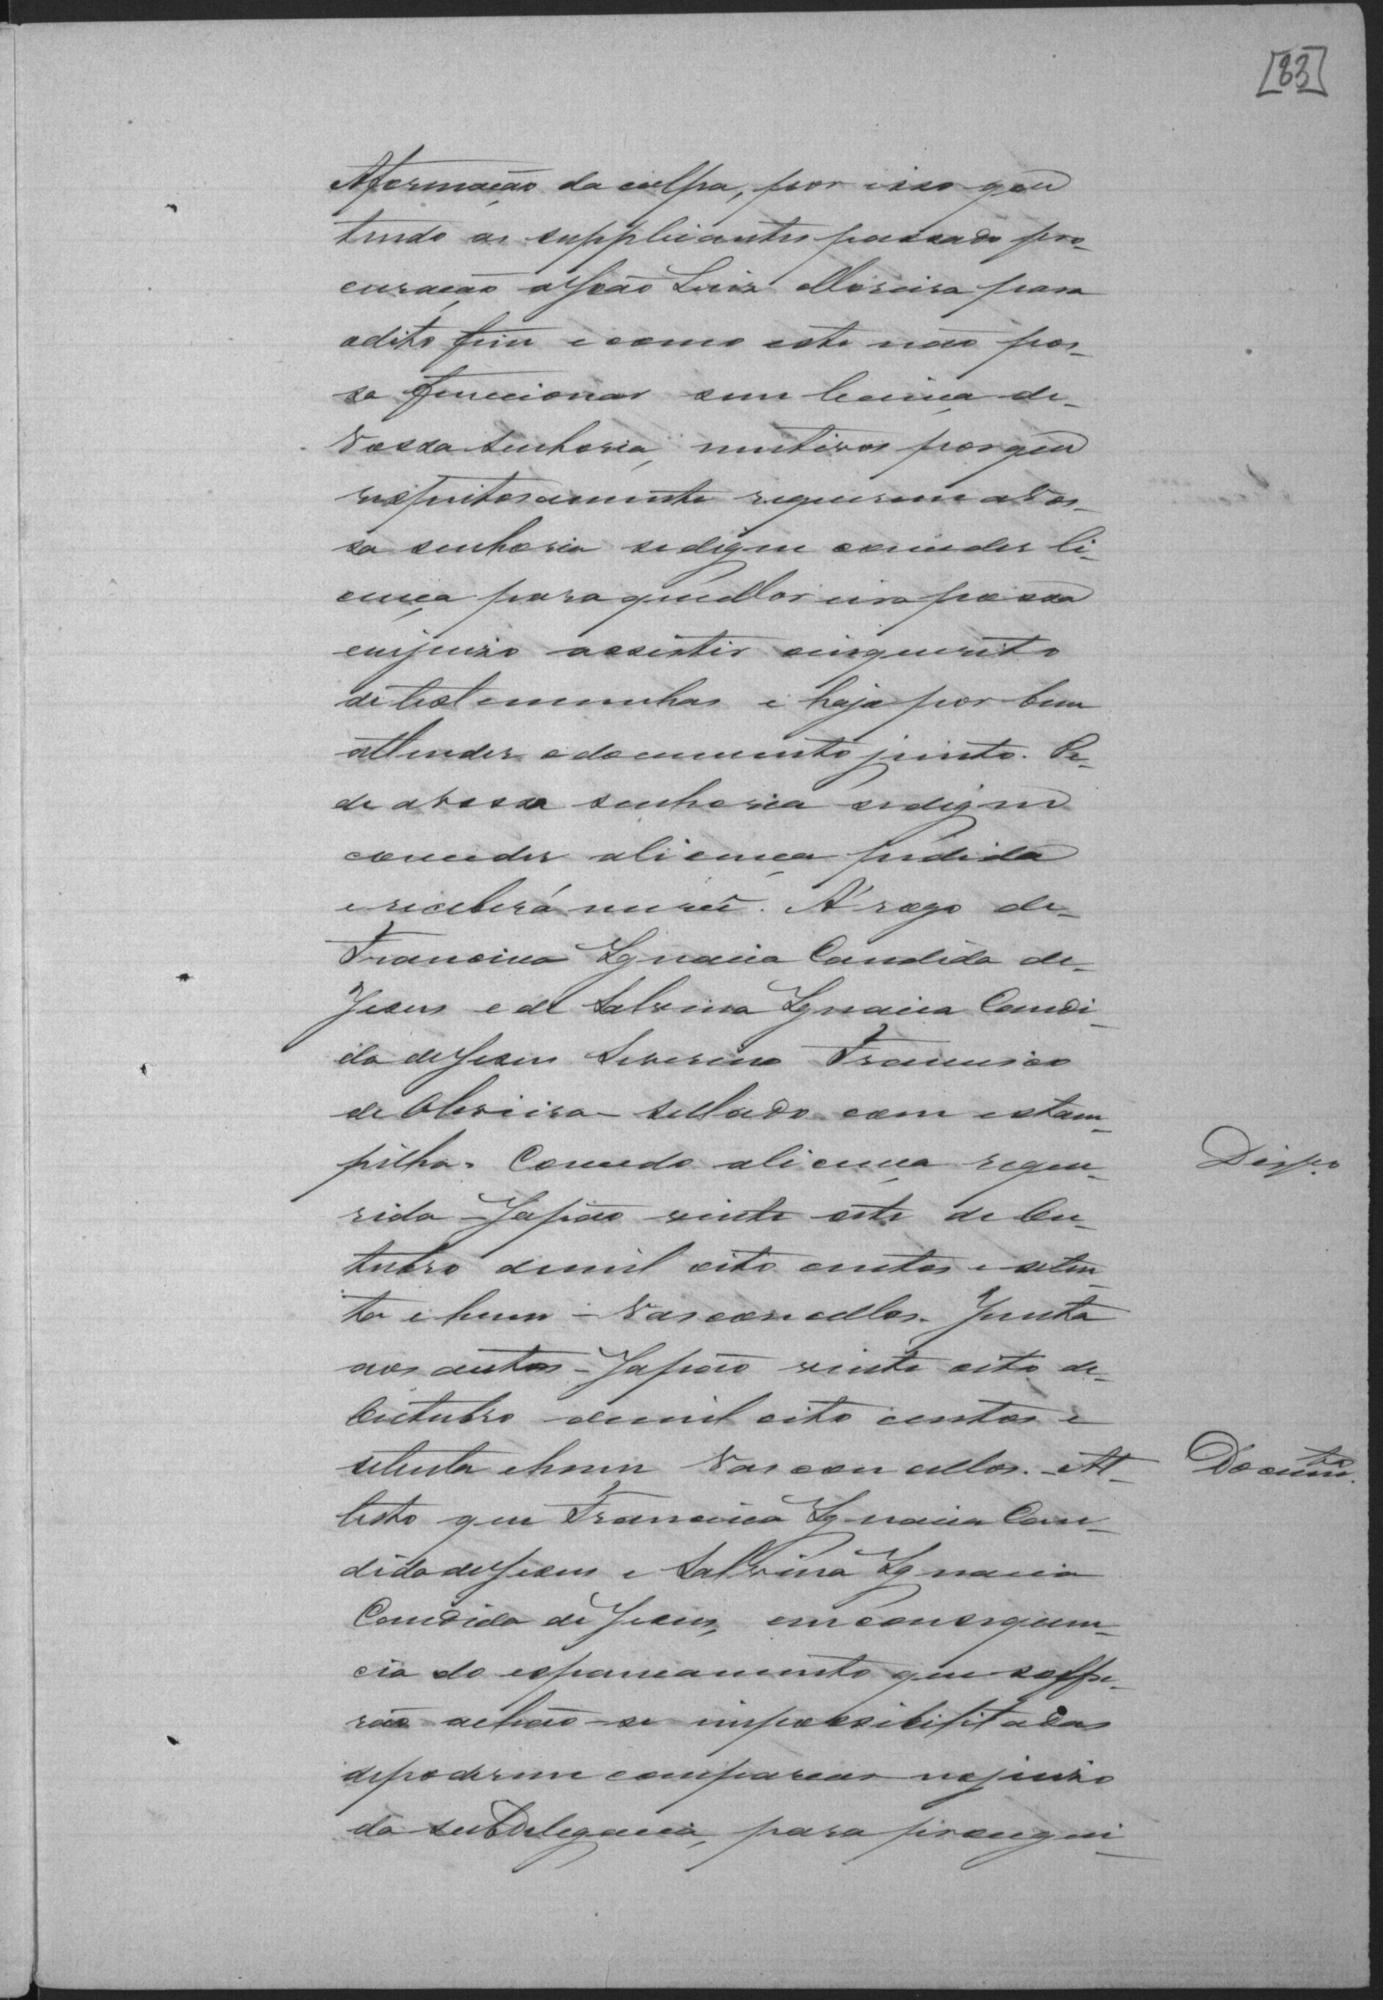 [83]
A formação da culpa, por isso que
tendo as supplicantes passado pro-
curação a João Luiz Moreira para
o dito fim e como este não pos-
sa funccionar sem licença de-
Vossa Senhoria, mutivos porque
respeitosamente requerem a Vos-
sa senhoria se digne conceder li-
cença para que Moreira possa
em juizo assistir o inquerito
de testemunhas e haja por bem
attender o documento junto. Pe-
de a vossa senhoria se digne
conceder a licença pedida
e receberá mercê. A' rogo de-
Francisca Ignacia Candida de-
Jesus e de Salvina Ignacia Candi-
da de Jesus Severino Francisco
de Oliveira - sellado com estam-
pilha. Concedo a licença reque-
rida - Japão vinte oito de Ou-
tubro de mil oito centos e seten-
ta e hum - Vasconcellos. Junta
aos autos - Japão vinte oito de-
Outubro de mil oito centos e
setenta e hum Vasconcellos. - At-
testo que Francisca Ignacia Can-
dida de Jesus e Salvina Ignacia
Candida de Jesus, em consequen-
cia do espancamento que soffre-
rão achão-se impossibilitadas
de poderem comparecer no juizo
da subdelegacia, para proregui-
Desp.o
Docum.to